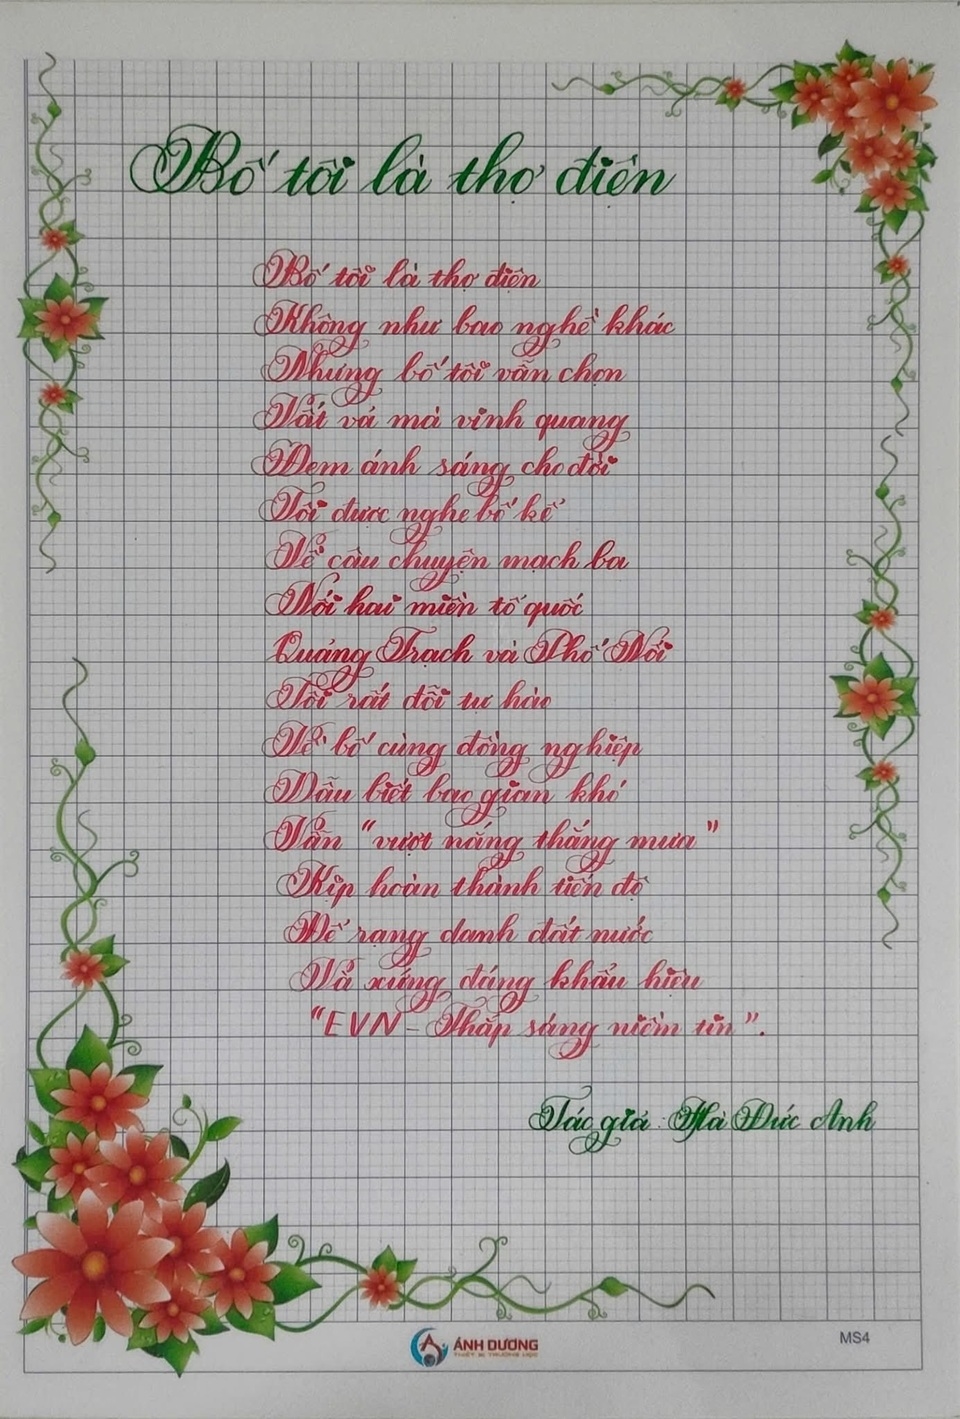 Bố tôi là thợ điện
Bố tôi là thợ điện
Không như bao nghề khác
Nhưng bố tôi vẫn chọn
Vất vả mà vinh quang
Đem ánh sáng cho đời
Tôi được nghe bố kể
Về câu chuyện mạch ba
Nối hai miền tổ quốc
Quảng Trạch và Phố Nối
Tôi rất đỗi tự hào
Về bố cùng đồng nghiệp
Dẫu biết bao gian khó
Vẫn "vượt nắng thắng mưa"
Kịp hoàn thành tiến độ
Để rạng danh đất nước
Và xứng đáng khẩu hiệu
"EVN - Thắp sáng niềm tin".
Tác giả: Hà Đức Anh
ÁNH DƯƠNG
THIẾT BỊ TRƯỜNG HỌC
MS4